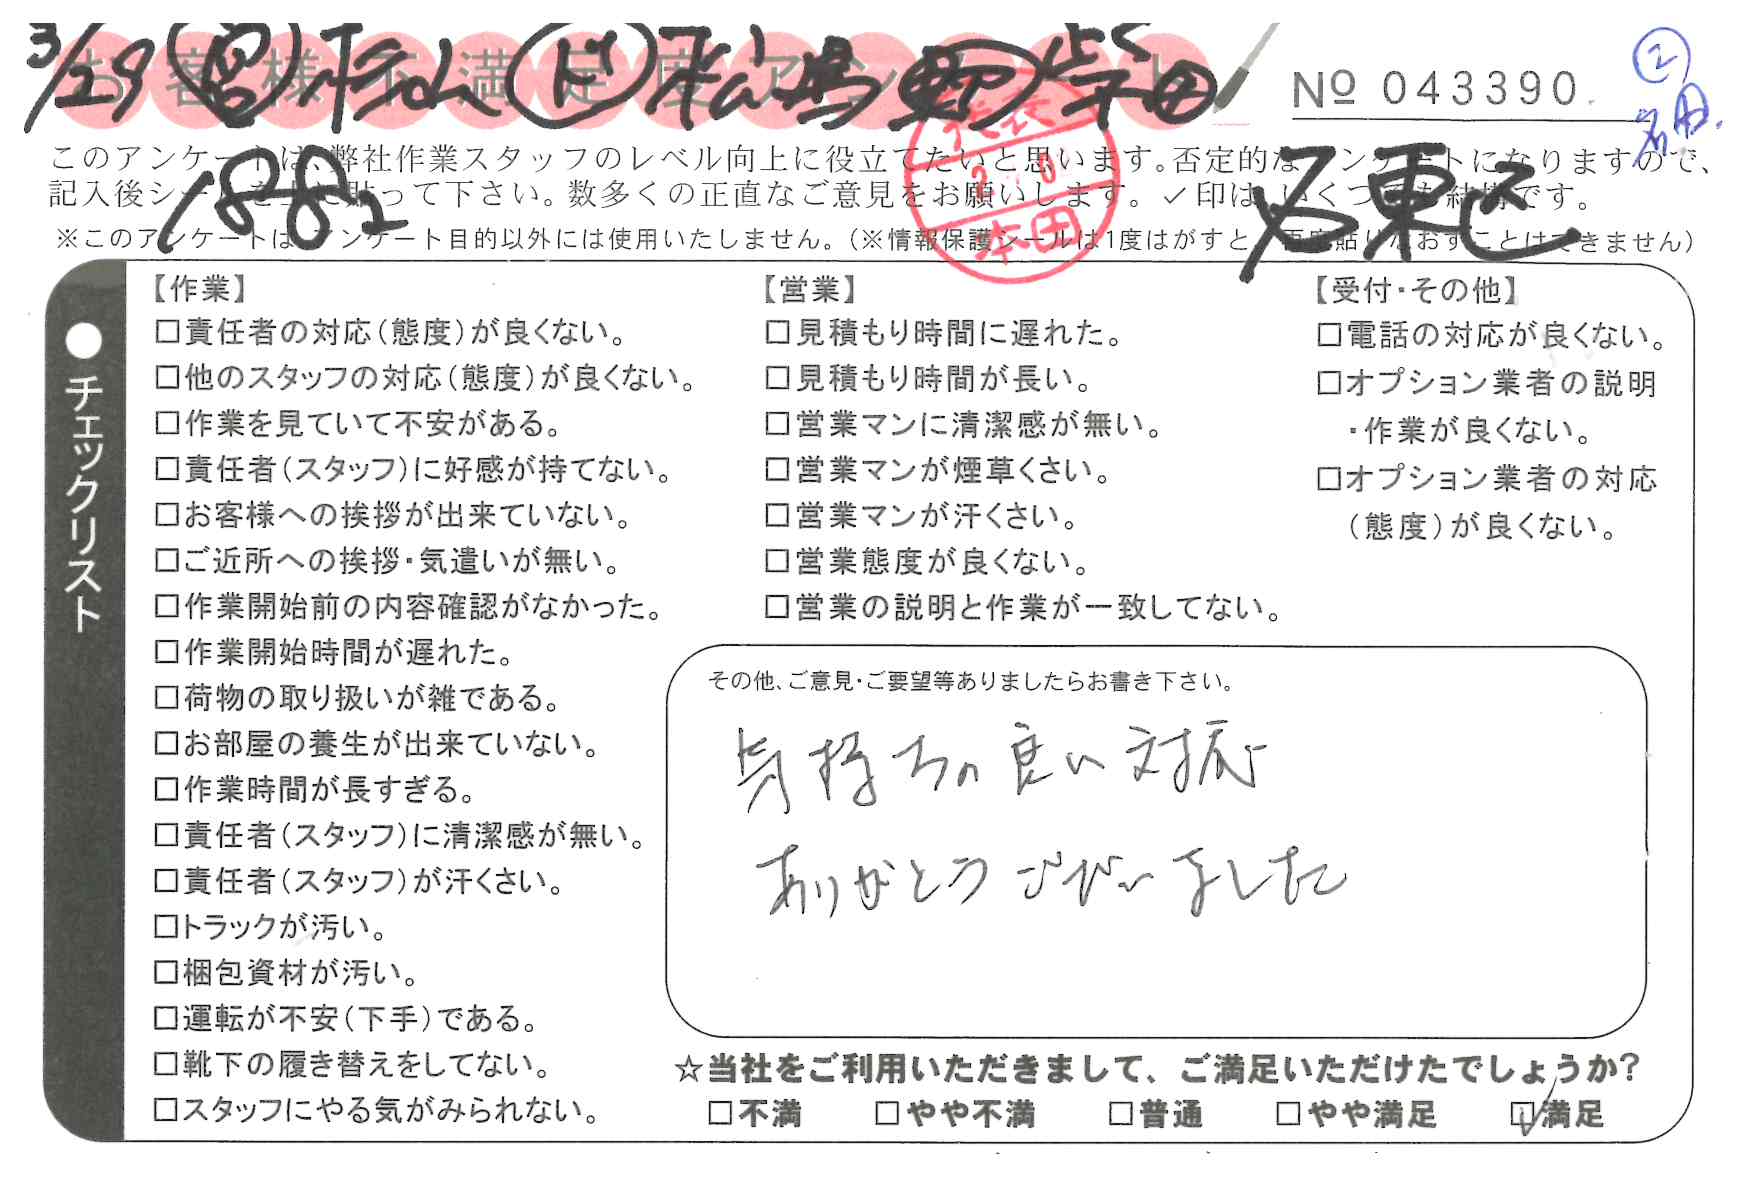 3/29 営 杉山 ド 松嶋 助 柴田
お客様不満足度アンケート
No 043390
②
1882
このアンケートは、弊社作業スタッフのレベル向上に役立てたいと思います。否定的なアンケートになりますので、
記入後シールを上に貼って下さい。数多くの正直なご意見をお願いします。✓印はいくつでも結構です。
※このアンケートは、アンケート目的以外には使用いたしません。(※情報保護シールは1度はがすと、再度貼りなおすことはできません)
本田
●チェックリスト
【作業】
□責任者の対応(態度)が良くない。
□他のスタッフの対応(態度)が良くない。
□作業を見ていて不安がある。
□責任者(スタッフ)に好感が持てない。
□お客様への挨拶が出来ていない。
□ご近所への挨拶・気遣いが無い。
□作業開始前の内容確認がなかった。
□作業開始時間が遅れた。
□荷物の取り扱いが雑である。
□お部屋の養生が出来ていない。
□作業時間が長すぎる。
□責任者(スタッフ)に清潔感が無い。
□責任者(スタッフ)が汗くさい。
□トラックが汚い。
□梱包資材が汚い。
□運転が不安(下手)である。
□靴下の履き替えをしてない。
□スタッフにやる気がみられない。
【営業】
□見積もり時間に遅れた。
□見積もり時間が長い。
□営業マンに清潔感が無い。
□営業マンが煙草くさい。
□営業マンが汗くさい。
□営業態度が良くない。
□営業の説明と作業が一致してない。
【受付・その他】
□電話の対応が良くない。
□オプション業者の説明
・作業が良くない。
□オプション業者の対応
(態度)が良くない。
その他、ご意見・ご要望等ありましたらお書き下さい。
気持ちの良い対応
ありがとうございました
☆当社をご利用いただきまして、ご満足いただけたでしょうか?
□不満 □やや不満 □普通 □やや満足 ☑満足